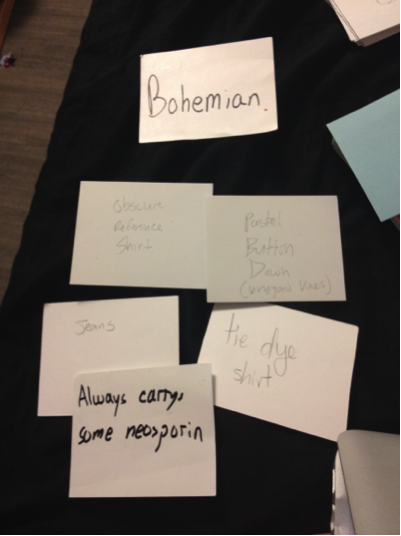 Bohemian.
Obscure
Reference
Shirt
Pastel
Button
Down
Jeans
tie dye
shirt
Always carrys
some neosporin